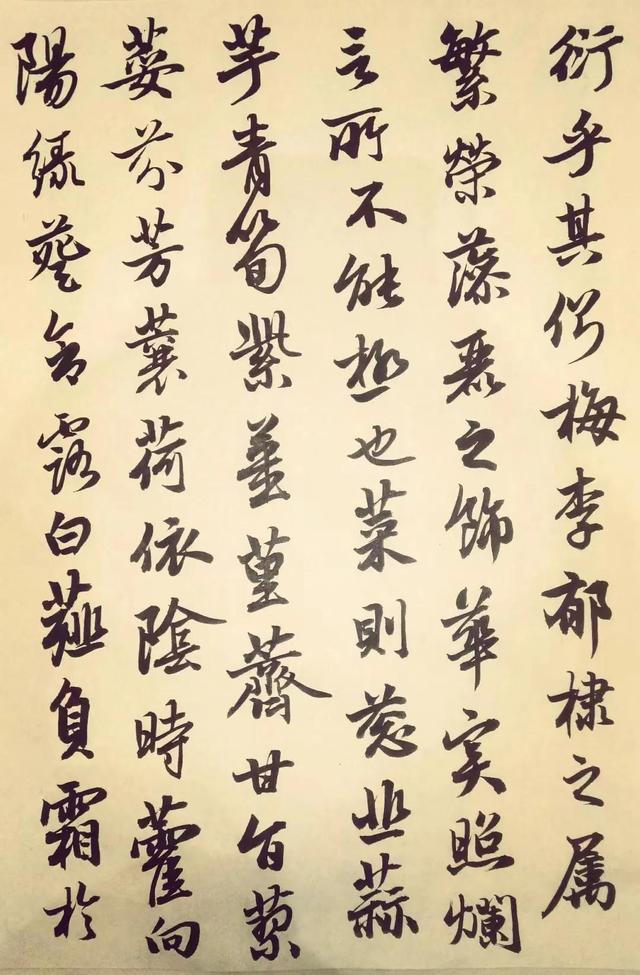 衍乎其側梅李郁棣之属
繁榮藻麗之飾華実照爛
言所不能極也菜則葱韭蒜
芋青筍紫薑堇薺甘旨蓼
荽芬芳蘘荷依陰時藿向
陽緑葵含露白薤負霜於